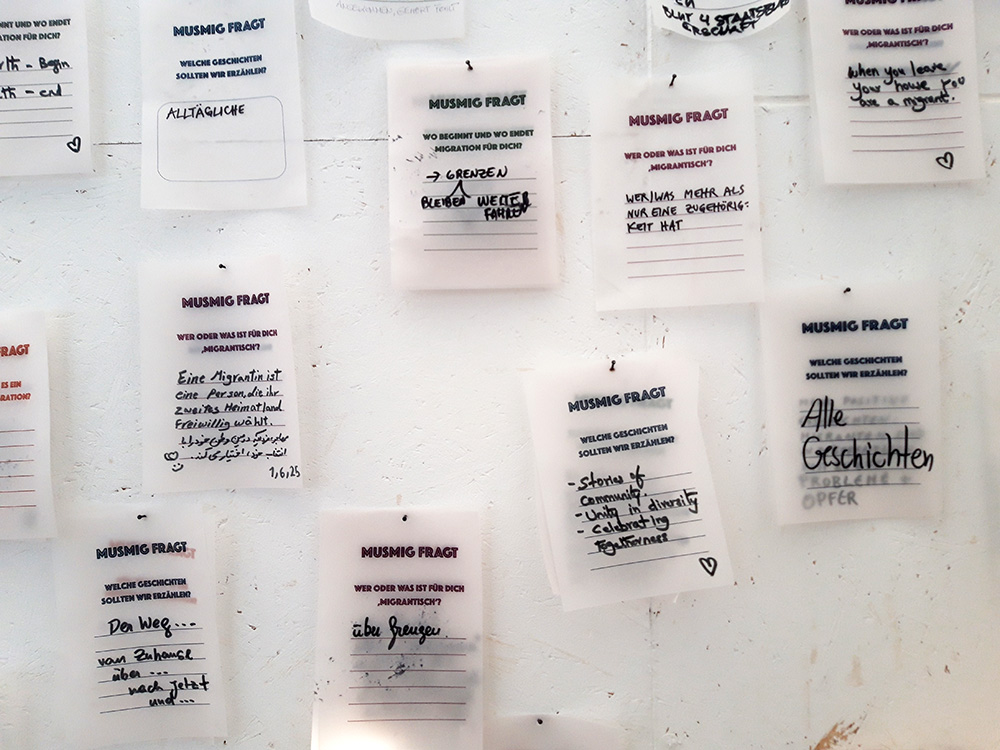 NNT UND WO ENDET
RATION FÜR DICH?
- Begin
- end
MUSMIG FRAGT
WELCHE GESCHICHTEN
SOLLTEN WIR ERZÄHLEN?
ALLTÄGLICHE
BLUT & STAATSBÜR
ERSCHAFT
MUSMIG FRAGT
WO BEGINNT UND WO ENDET
MIGRATION FÜR DICH?
→ GRENZEN
BLEIBEN WEITER
FAHREN
MUSMIG FRAGT
WER ODER WAS IST FÜR DICH
‚MIGRANTISCH'?
WER/WAS MEHR ALS
NUR EINE ZUGEHÖRIG-
KEIT HAT
MUSMIG FRAGT
WER ODER WAS IST FÜR DICH
‚MIGRANTISCH'?
When you leave
your home you
are a migrant.
MUSMIG FRAGT
WER ODER WAS IST FÜR DICH
‚MIGRANTISCH'?
Eine Migrantin ist
eine Person, die ihr
zweites Heimatland
Freiwillig wählt.
1,6,25
FRAGT
ES EIN
RATION?
MUSMIG FRAGT
WELCHE GESCHICHTEN
SOLLTEN WIR ERZÄHLEN?
- Stories of
community.
- Unity in diversity
- Celebrating
togetherness
MUSMIG FRAGT
WELCHE GESCHICHTEN
SOLLTEN WIR ERZÄHLEN?
Alle
Geschichten
PROBLEME &
OPFER
MUSMIG FRAGT
WELCHE GESCHICHTEN
SOLLTEN WIR ERZÄHLEN?
Der Weg...
von Zuhause
über ...
nach jetzt
und ...
MUSMIG FRAGT
WER ODER WAS IST FÜR DICH
‚MIGRANTISCH'?
über Grenzen